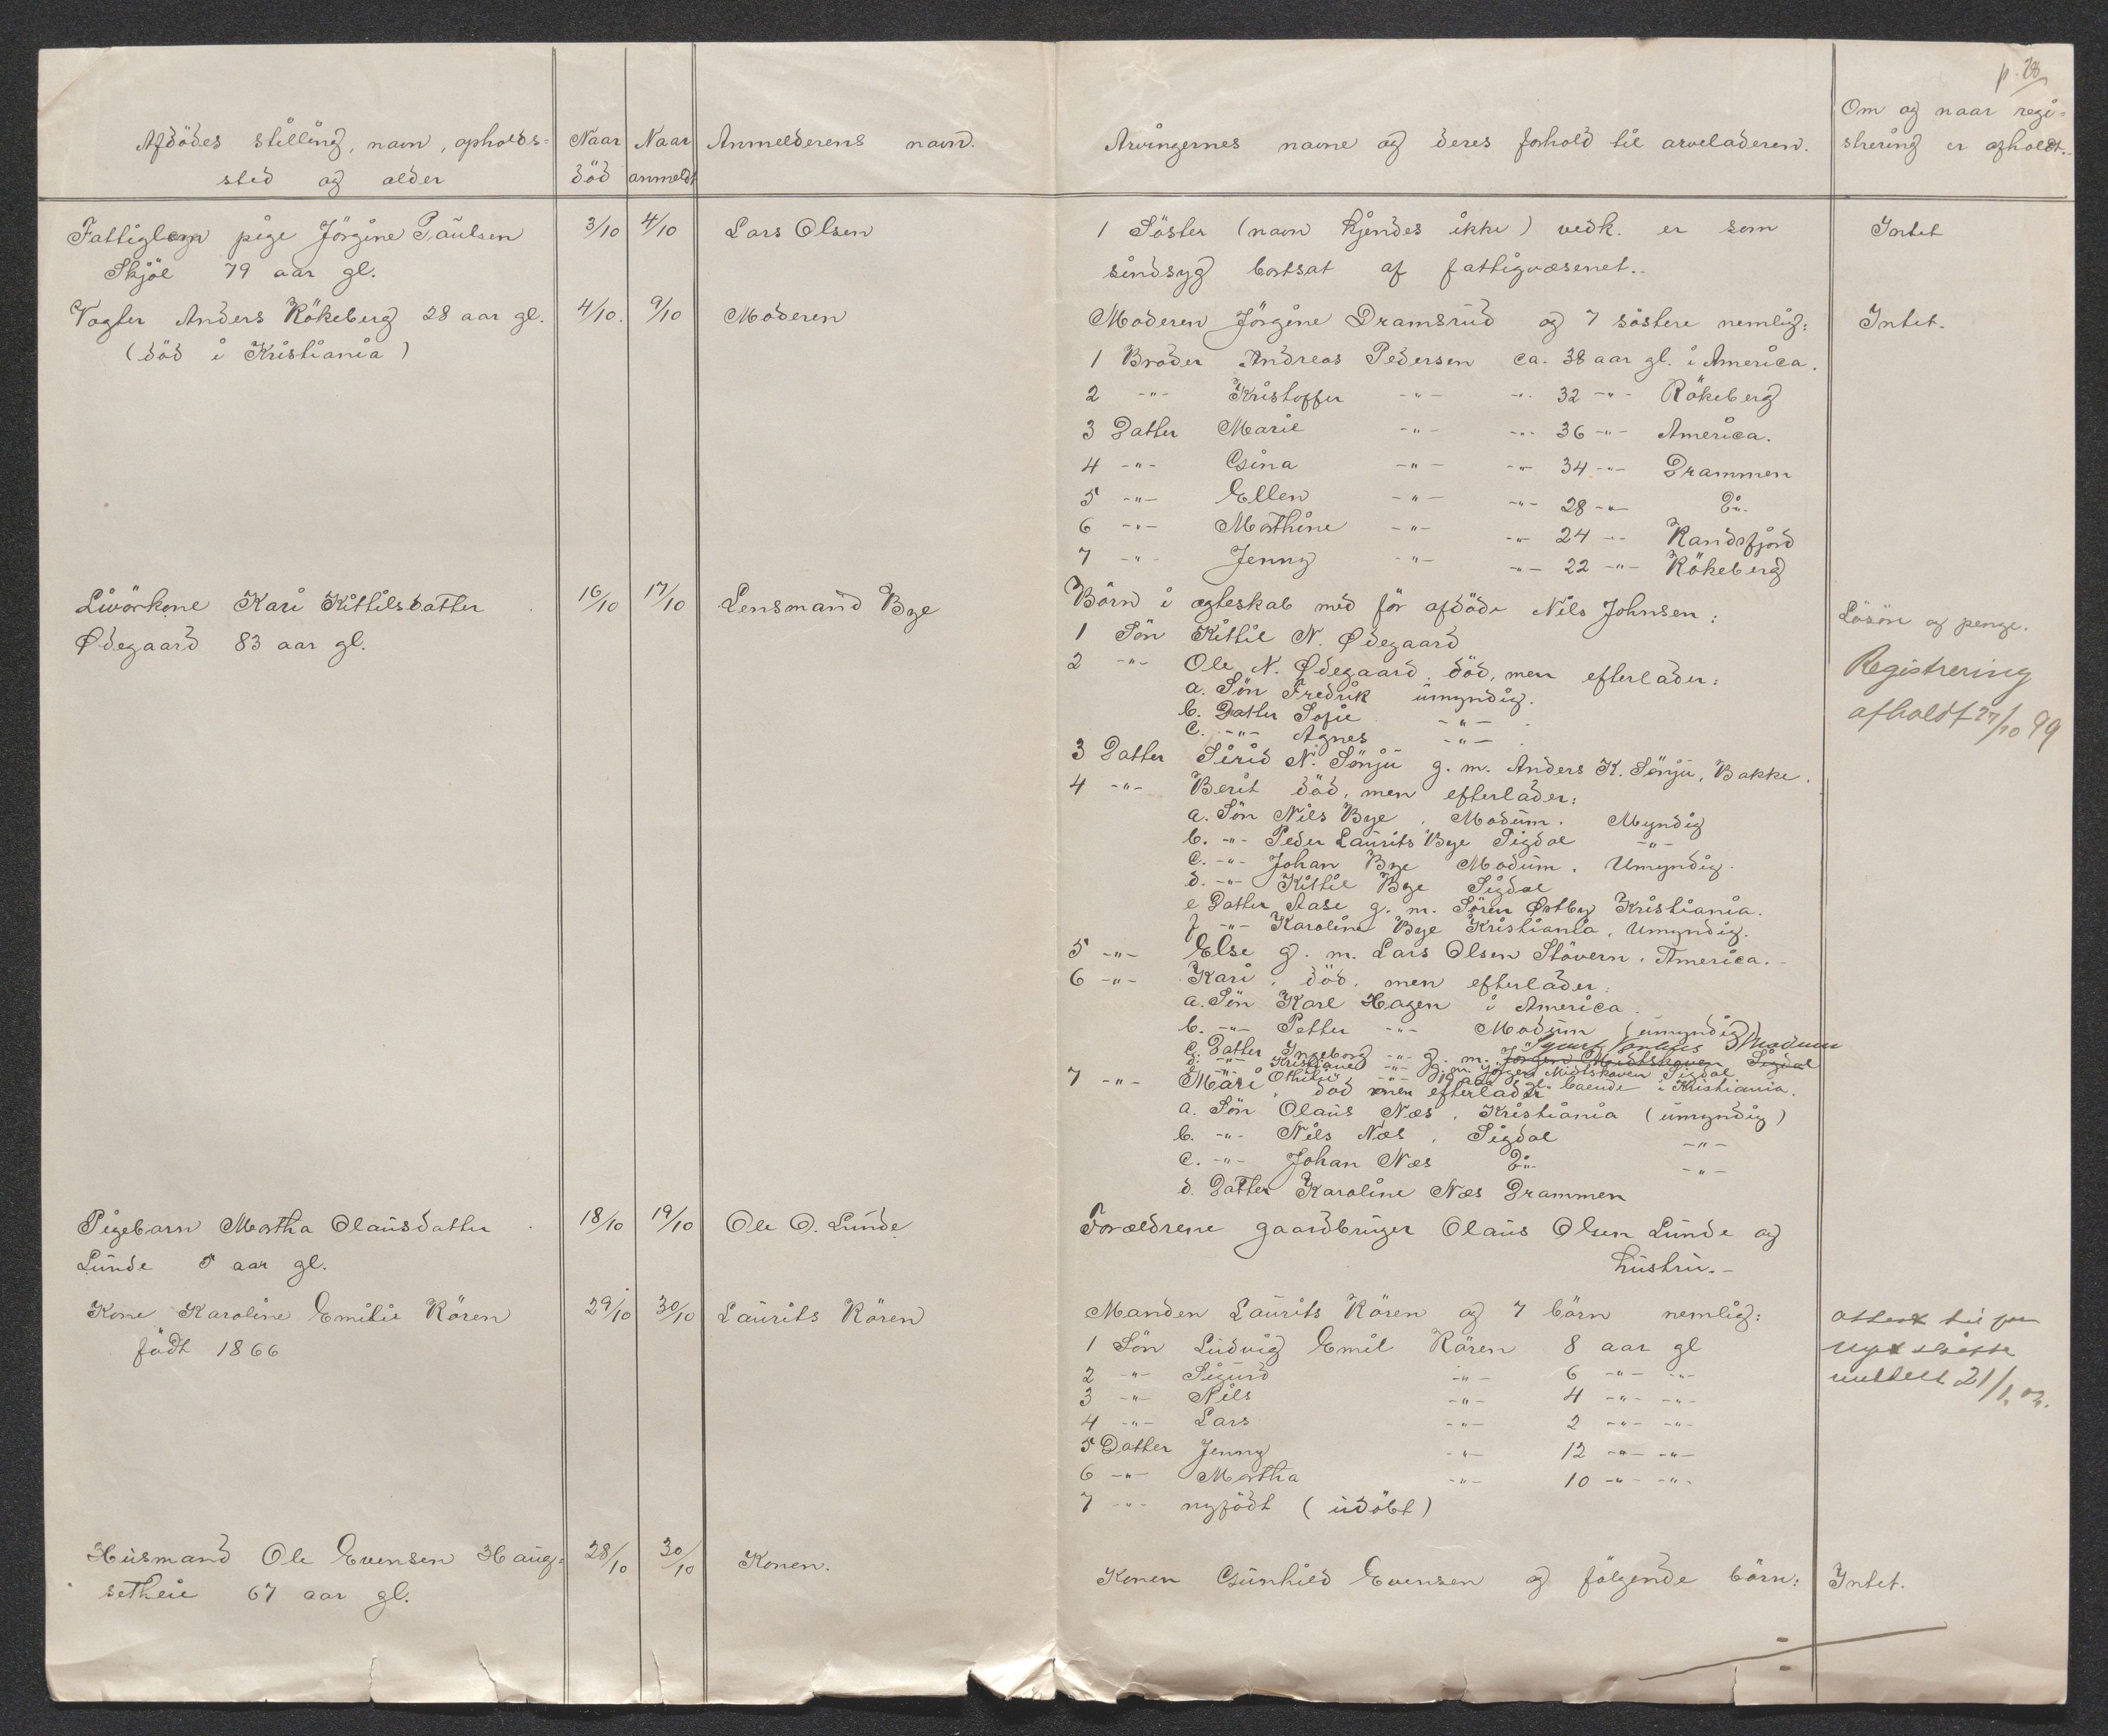 p. 28
Afdödes stilling, navn, opholds=
sted og alder
Naar
död
Naar
anmeldt
Anmelderens navn.
Arvingernes navne og deres forhold til arveladeren.
Om og naar regi=
strering er afholdt.
Fattiglem pige Jörgine Paulsen
Skjöl 79 aar gl.
3/10
4/10
Lars Olsen
1 Söster (navn kjendes ikke) vedk. er som
sindsyg bortsat af fattigvæsenet..
Intet
Vogter Anders Rökeberg 28 aar gl.
(död i Kristiania)
4/10.
9/10
Moderen
Moderen Jörgine Dramsrud og 7 söstere nemlig:
Intet.
1 Broder Andreas Pedersen ca. 38 aar gl. i America.
2 -"- Kristoffer -"- -"- 32 -"- Rökeberg
3 Datter Marie -"- -"- 36 -"- America.
4 -"- Gina -"- -"- 34 -"- Drammen
5 -"- Ellen -"- -"- 28 -"- Do.
6 -"- Marthine -"- -"- 24 -"- Randsfjord
7 -"- Jenny -"- -"- 22 -"- Rökeberg
Livörkone Kari Kittilsdatter
Ødegaard 83 aar gl.
16/10
17/10
Lensmand Bye
Börn i ægteskab med för afdöde Nils Johnsen:
Lösöre og penge.
Registrering
afholdt 27/10 99
1 Sön Kittil N. Ødegaard
2 -"- Ole N. Ødegaard död, men efterlader:
a. Sön Fredrik umyndig.
b. Datter Sofie -"-
c. -"- Agnes -"-
3 Datter Sirid N. Sönju g. m. Anders K. Sönju, Bakke.
4 -"- Berit död, men efterlader:
a. Sön Nils Bye, Modum. Myndig
b. -"- Peder Laurits Bye Sigdal -"-
c. -"- Johan Bye Modum. Umyndig.
d. -"- Kittil Bye Sigdal
e Datter Aase g. m. Sören Østby Kristiania.
f -"- Karoline Bye Kristiania, Umyndig.
5 -"- Else g. m. Lars Olsen Stövern. America.
6 -"- Kari, död, men efterlader:
a. Sön Karl Hagen i America.
b. -"- Petter -"- Modum (umyndig)
c. Datter Ingeborg -"- g. m. Jörgen Midtskoven Sigdal Modum
d. -"- Kristiane -"- g. m. Jörgen Midtskoven Sigdal
e. -"- Othilie -"- 19 aar gl. boende i Kristiania.
7 -"- Mari, död men efterlader
a. Sön Olaus Næs, Kristiania (umyndig)
b. -"- Nils Næs, Sigdal -"-
c. -"- Johan Næs Do. -"-
d. Datter Karoline Næs Drammen
Pigebarn Martha Olausdatter
Lunde 5 aar gl.
18/10
19/10
Ole O. Lunde
Forældrene gaardbruger Olaus Olsen Lunde og
hustru.-
Kone Karoline Emilie Rören
födt 1866
29/10
30/10
Laurits Rören
Manden Laurits Rören og 7 börn nemlig:
1 Sön Ludvig Emil Rören 8 aar gl
2 -"- Sigurd -"- 6 -"- -"-
3 -"- Nils -"- 4 -"- -"-
4 -"- Lars -"- 2 -"- -"-
5 Datter Jenny -"- 12 -"- -"-
6 -"- Martha -"- 10 -"- -"-
7 -"- nyfödt (udöbt)
attest til
meddelt 21/1 02.
Husmand Ole Evensen Haug=
setheie 67 aar gl.
28/10
30/10
Konen.
Konen Gunhild Evensen og fölgende börn:
Intet.